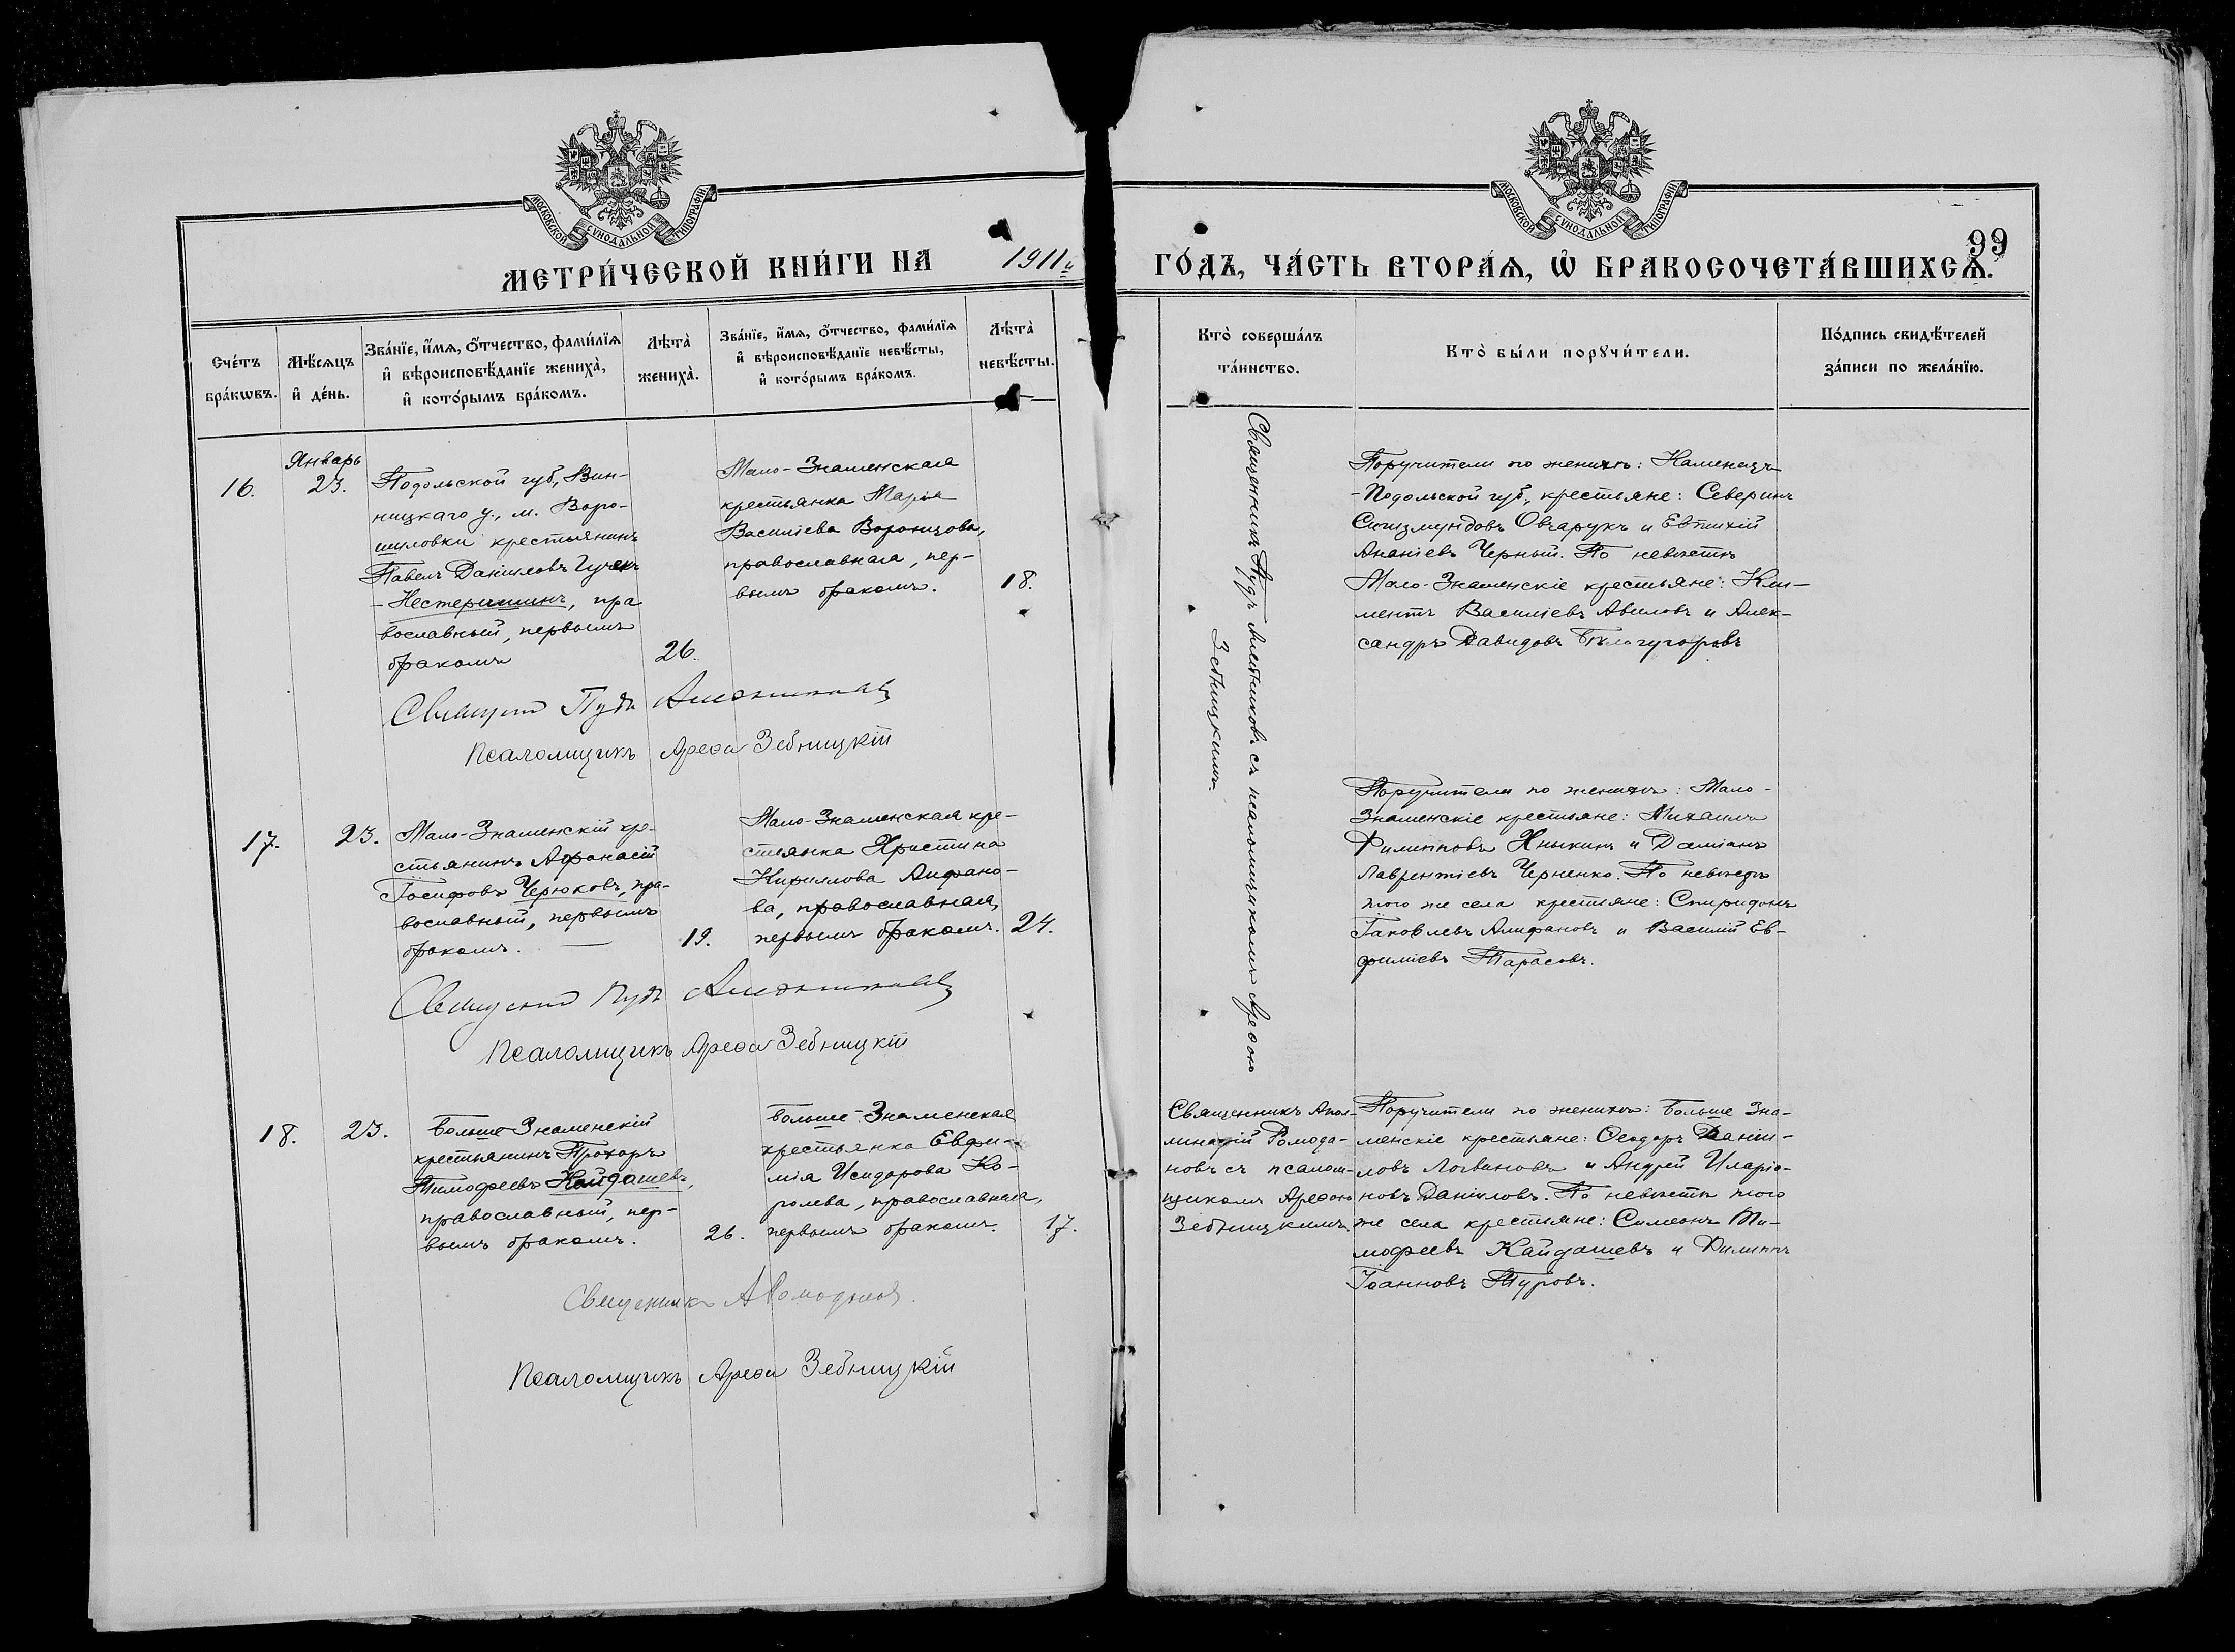 МОСКОВСКОЙ СУНОДАЛЬНОЙ ТИПОГРАФІИ
МЕТРИ́ЧЕСКОЙ КНИ́ГИ НА 1911й
Сче́тъ бра́кѡвъ.
Мѣ́сяцъ и҆ де́нь.
Зва́нїе, и҆́мя, ѻ҆́тчество, фами́лїя и҆ вѣроисповѣ́данїе жениха̀, и҆ кото́рымъ бра́комъ.
Лѣта̀ жениха̀.
Зва́нїе, и҆́мя, ѻ҆́тчество, фами́лїя и҆ вѣроисповѣ́данїе невѣ́сты, и҆ кото́рымъ бра́комъ.
Лѣта̀ невѣ́сты.
16.
Январь
23.
Подольской губ., Вин-
ницкаго у., м. Воро-
шиловки крестьянинъ
Павелъ Данiиловъ
-Нестеришинъ, пра
вославный, первымъ
бракомъ
26.
Мало-Знаменская
крестьянка Марiя
Василiева Воронцова,
православная, пер-
вымъ бракомъ.
18.
Священникъ Пудъ Алейниковъ
Псаломщикъ Ареѳа Зебницкiй
17.
23.
Мало-Знаменскiй кре-
стьянинъ Аѳанасiй
Iосифовъ Черюковъ, пра-
вославный, первымъ
бракомъ. —
19.
Мало-Знаменская кре-
стьянка Христина
Кириллова Алифано-
ва, православная,
первымъ бракомъ.
24.
Священникъ Пудъ Алейниковъ
Псаломщикъ Ареѳа Зебницкiй
18.
23.
Больше-Знаменскiй
крестьянинъ Прохоръ
Тимофеевъ Кайдашевъ,
православный, пер-
вымъ бракомъ.
26.
Больше-Знаменская
крестьянка Евфи-
мiя Исидорова Ко-
ролева, православная,
первымъ бракомъ.
17.
Священникъ А Ромодановъ.
Псаломщикъ Ареѳа Зебницкiй
МОСКОВСКОЙ СУНОДАЛЬНОЙ ТИПОГРАФІИ
99
ГО́ДЪ, ЧА́СТЬ ВТОРА́Я, Ѡ҆ БРАКОСОЧЕТА́ВШИХСЯ.
Кто̀ соверша́лъ та́инство.
Кто̀ бы́ли порꙋчи́тели.
По́дпись свидѣ́телей за́писи по жела́нїю.
Священникъ Пудъ Алейниковъ съ псаломщикомъ Ареѳою
Зебницкимъ.
Поручители по женихѣ: Каменецъ-
-Подольской губ., крестьяне: Северинъ
Сигизмундовъ Овчарукъ и Евтихiй
Ананiевъ Черный. По невѣстѣ
Мало-Знаменскiе крестьяне: Кли-
ментъ Василiевъ Авиловъ и Алек-
сандръ Давидовъ Бѣлогугоровъ
Поручители по женихѣ: Мало-
Знаменскiе крестьяне: Михаилъ
Филипповъ Хныкинъ и Дамiанъ
Лаврентiевъ Черненко. По невѣстѣ
того же села крестьяне: Спиридонъ
Iаковлевъ Алифановъ и Василiй Ев-
фимiевъ Тарасовъ.
Священникъ Апол-
линарiй Ромода-
новъ съ псалом-
щикомъ Ареѳою
Зебницкимъ.
Поручители по женихѣ: Больше Зна-
менскiе крестьяне: Ѳеодоръ Данiи-
ловъ Логвиновъ и Андрей Иларiо-
новъ Данiиловъ. По невѣстѣ того
же села крестьяне: Симеонъ Ти-
мофеевъ Кайдашевъ и Филиппъ
Iоанновъ Туровъ.